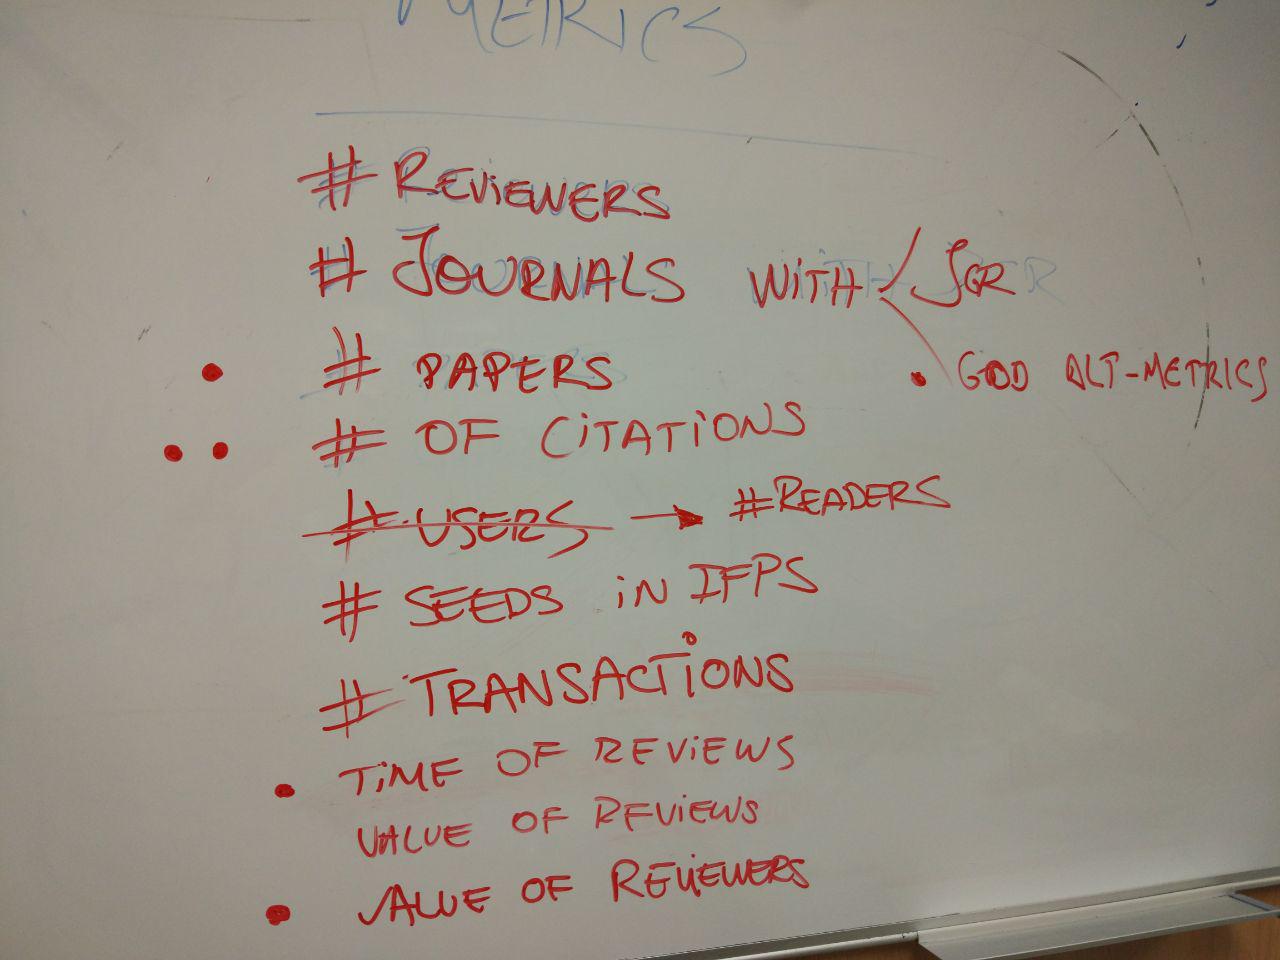 METRICS
# REVIEWERS
# JOURNALS WITH JCR
• GOOD ALT-METRICS
• # PAPERS
• • # OF CITATIONS
# USERS → #READERS
# SEEDS iN IFPS
# TRANSACTIONS
• TIME OF REVIEWS
VALUE OF REVIEWS
• VALUE OF REVIEWERS